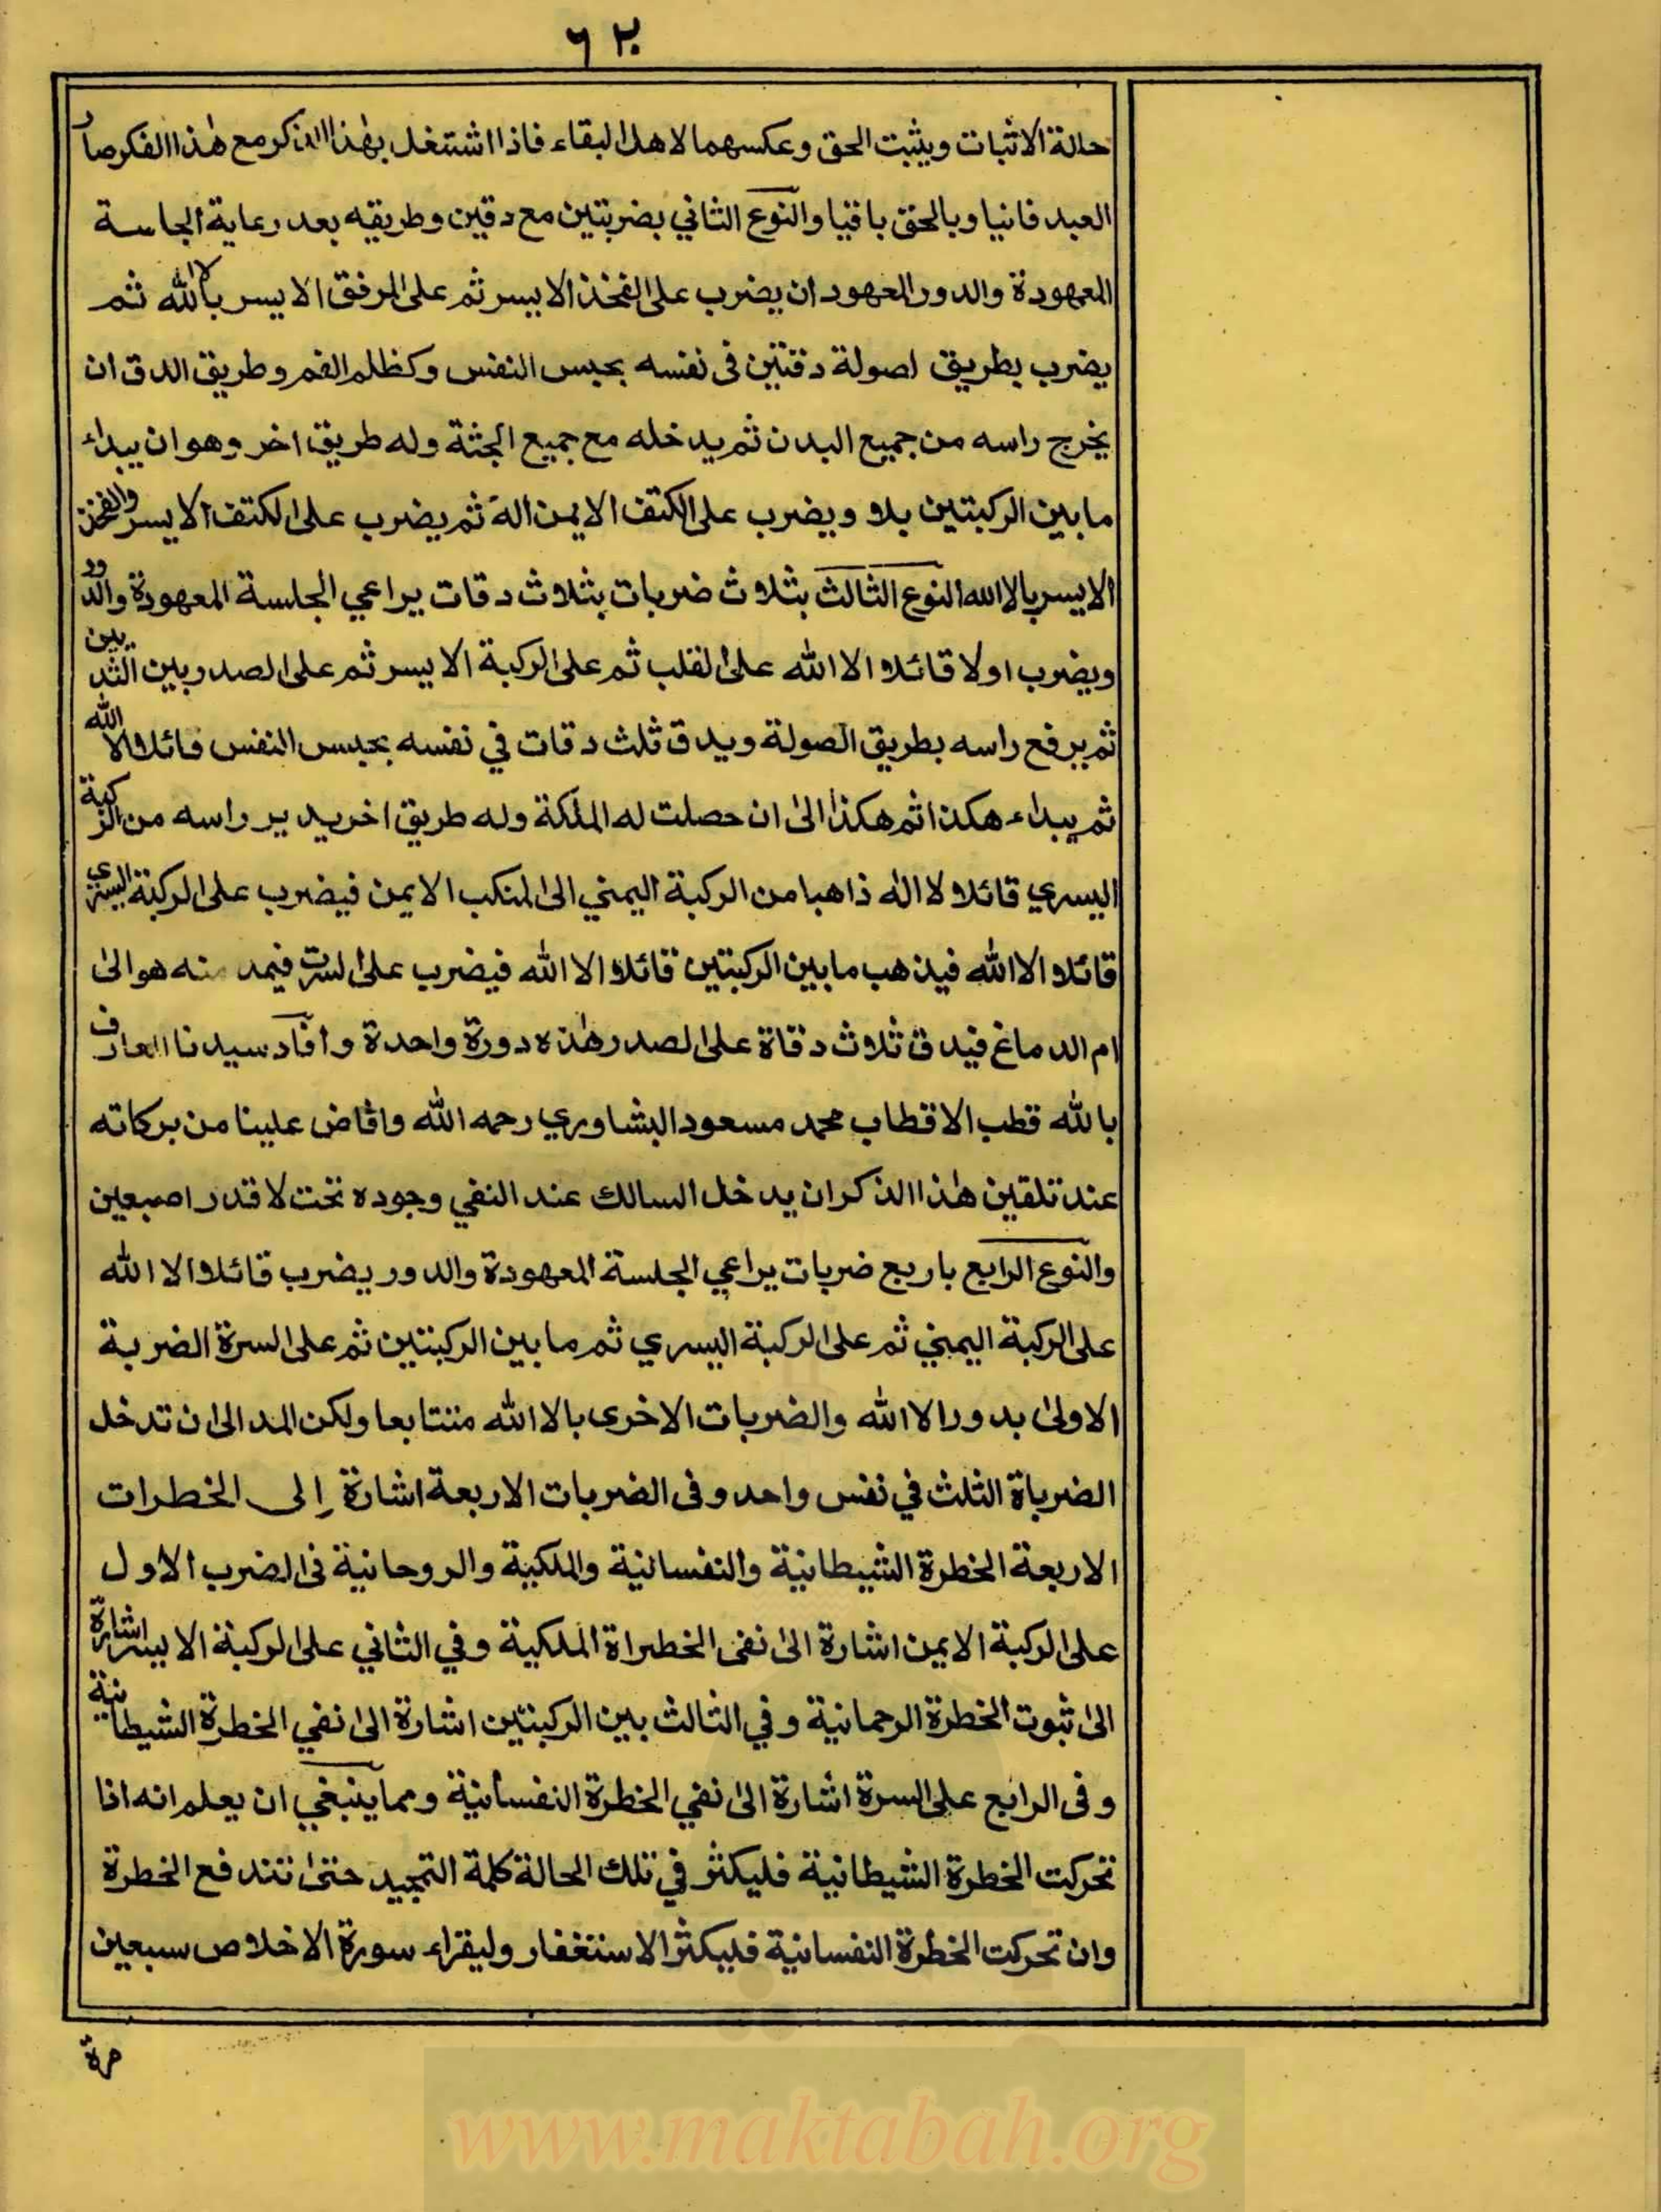 ٦٢٠
حالة الاثبات ويثبت الحق وعكسهما لاهل البقاء فاذا اشتغل بهذا الذكر مع هذا الفكر صار
العبد فانيا وبالحق باقيا والنوع الثاني بضربتين مع دقين وطريقه بعد رعاية الجلسة
المعهودة والدور المعهود ان يضرب على الفخذ الايسر ثم على المرفق الايسر بالا الله ثم
يضرب بطريق اصولة دقتين فى نفسه بحبس النفس وكظلم الفم وطريق الدق ان
يخرج راسه من جميع البدن ثم يدخله مع جميع الجثة وله طريق اخر وهو ان يبداء
ما بين الركبتين بلا ويضرب على الكتف الايمن اله ثم يضرب على الكتف الايسر والفخذ
الايسر بالا الله النوع الثالث بثلاث ضربات بثلاث دقات يراعي الجلسة المعهودة والدور
ويضرب اولا قائلا الا الله على القلب ثم على الركبة الايسر ثم على الصدر وبين الثديين
ثم يرفع راسه بطريق الصولة ويدق ثلث دقات في نفسه بحبس النفس قائلا الا الله
ثم يبداء هكذا ثم هكذا الى ان حصلت له الملكة وله طريق اخر يدير راسه من الركبة
اليسري قائلا لا اله ذاهبا من الركبة اليمني الى المنكب الايمن فيضرب على الركبة اليسري
قائلا الا الله فيذهب ما بين الركبتين قائلا الا الله فيضرب على السرت فيمد منه هو الى
ام الدماغ فيدق ثلاث دقاة على الصدر هذه دورة واحدة وأفاد سيدنا العارف
بالله قطب الاقطاب محمد مسعود البشاوري رحمه الله وافاض علينا من بركاته
عند تلقين هذا الذكر ان يدخل السالك عند النفي وجوده تحت لا قدر اصبعين
والنوع الرابع باربع ضربات يراعي الجلسة المعهودة والدور يضرب قائلا الا الله
على الركبة اليمني ثم على الركبة اليسري ثم ما بين الركبتين ثم على السرة الضربة
الاولى بدور الا الله والضربات الاخرى بالا الله متتابعا ولكن المد الى ان تدخل
الضرباة الثلث في نفس واحد وفى الضربات الاربعة اشارة إلى الخطرات
الاربعة الخطرة الشيطانية والنفسانية والملكية والروحانية فى الضرب الاول
على الركبة الايمن اشارة الى نفى الخطراة الملكية وفي الثاني على الركبة الايسر اشارة
الى ثبوت الخطرة الرحمانية وفي الثالث بين الركبتين اشارة الى نفي الخطرة الشيطانية
وفى الرابع على السرة اشارة الى نفي الخطرة النفسانية ومما ينبغي ان يعلم انه اذا
تحركت الخطرة الشيطانية فليكثر في تلك الحالة كلمة التمجيد حتى تندفع الخطرة
وان تحركت الخطرة النفسانية فليكثر الاستغفار وليقراء سورة الاخلاص سبعين
مرة
www.maktabah.org